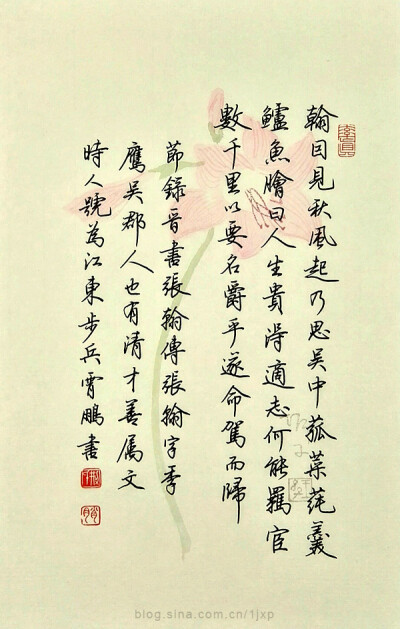 翰因見秋風起乃思吳中菰菜莼羹
鱸魚膾曰人生貴得適志何能羈宦
數千里以要名爵乎遂命駕而歸
節錄晉書張翰傳張翰字季
鷹吳郡人也有清才善属文
時人號為江東步兵霄鵬書
blog.sina.com.cn/1jxp